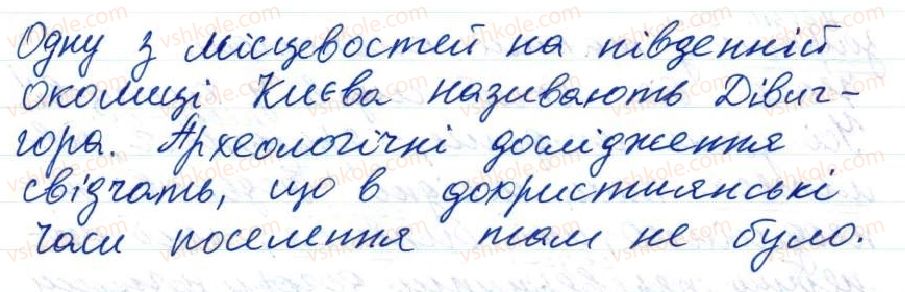 Одну з місцевостей на південній
околиці Києва називають Дівич-
гора. Археологічні дослідження
свідчать, що в дохристиянські
часи поселення там не було.